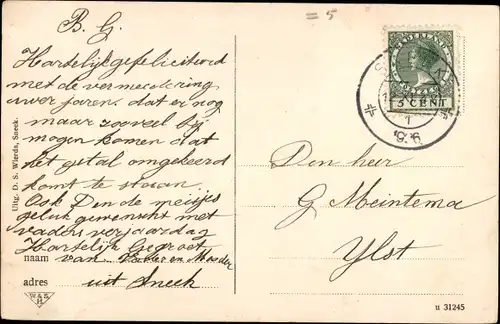 = 5
B. G.
Hartelijk gefeliciteerd
met de vermeerdering
uwer jaren. dat er nog
maar zooveel bij
mogen komen dat
het getal omgekeerd
komt te staan
Ook Den de meisjes
geluk gewenscht met
vaders verjaardag
Hartelijk Gegroet
naam van Vader en Moeder
adres uit Sneek
Uitg. D. S. Wierda, Sneek.
NEDERLAND
5 CENT
1
9.36
Den heer
G Meintema
Ylst
u 31245